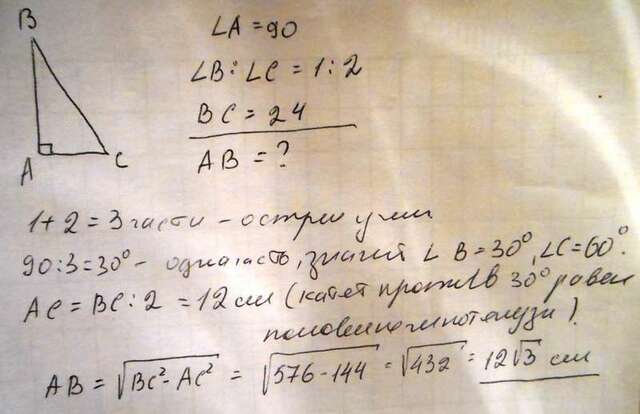 B
A
C
∠A = 90
∠B : ∠C = 1 : 2
BC = 24
AB = ?
1 + 2 = 3 части - острые углы
90 : 3 = 30° - одна часть, значит ∠ B = 30°, ∠C = 60°.
AC = BC : 2 = 12 см (катет против ∠ в 30° равен
половине гипотенузы).
AB = √BC² - AC² = √576 - 144 = √432 = 12√3 см